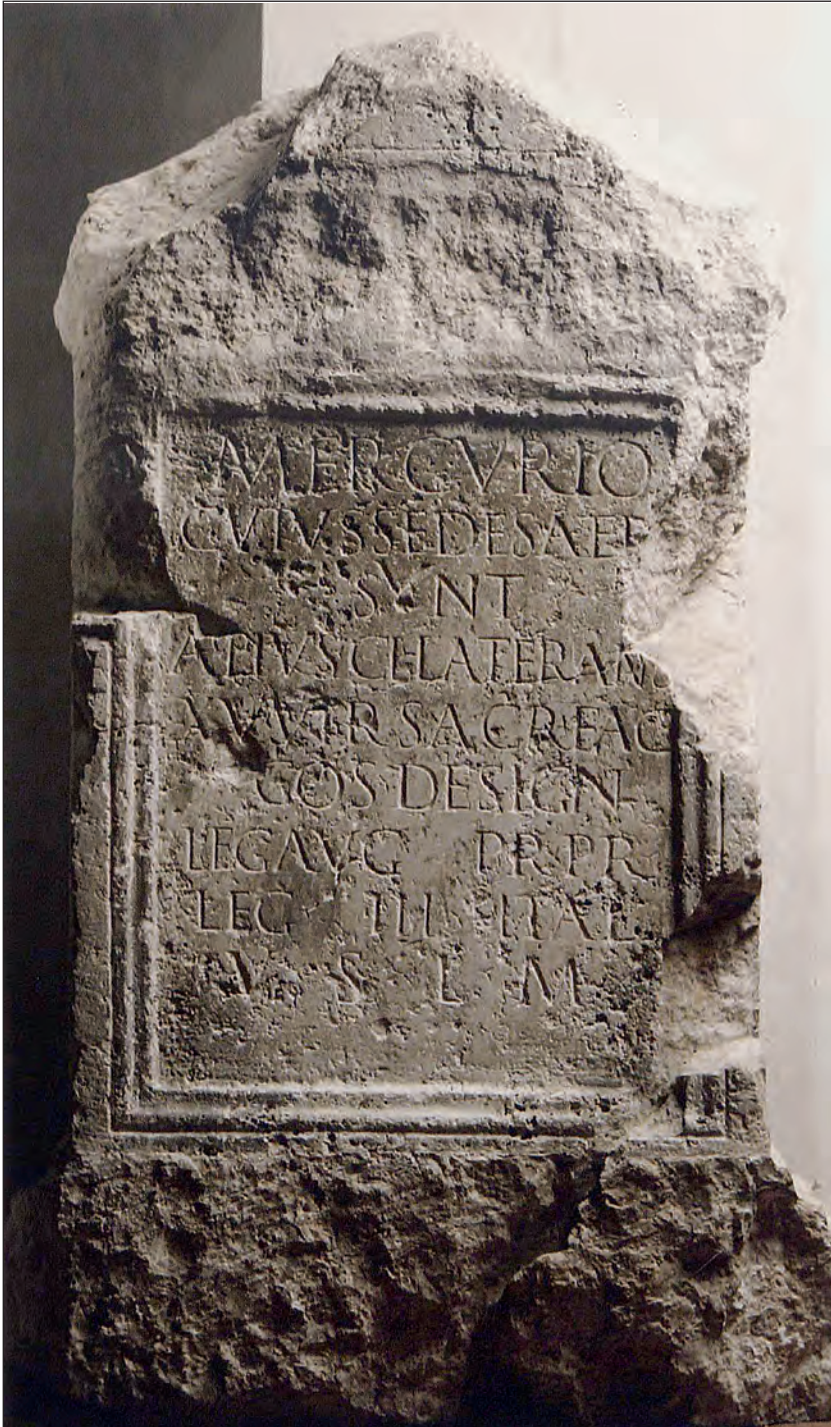 MERCVRIO
CVIVS SEDES AEP
SVNT
APPIVS CL LATERANVS
XV VIR SACR FAC
COS DESIGN
LEG AVG PR PR
LEG III ITAL
V S L M